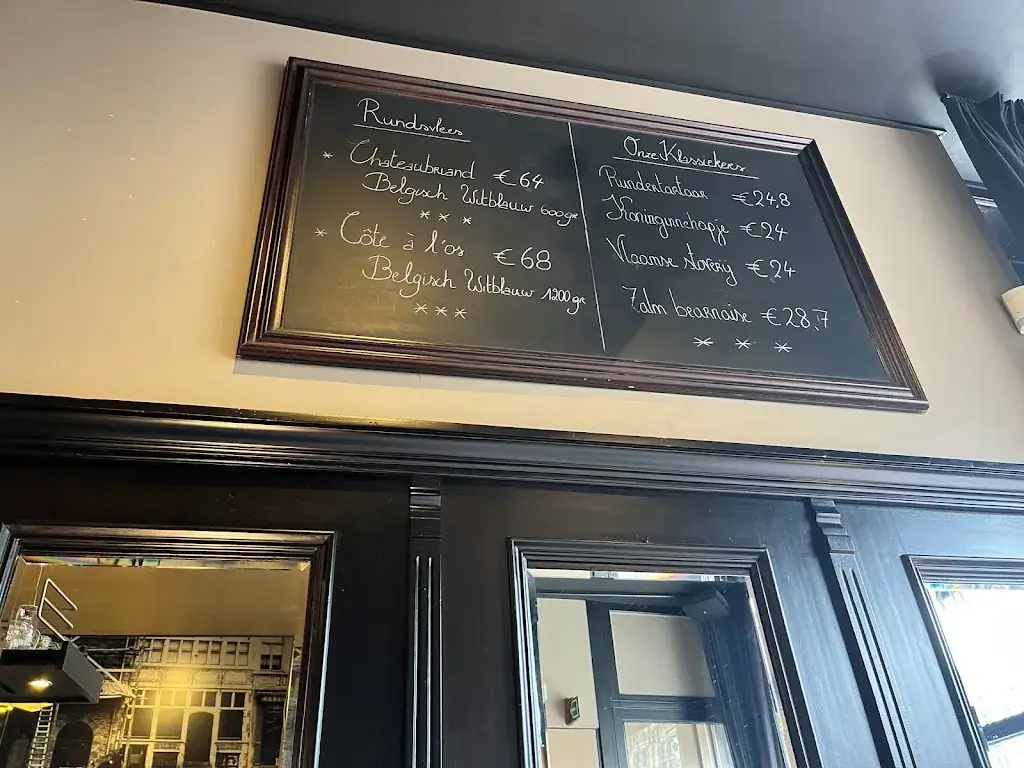 Rundsvlees
* Chateaubriand €64
Belgisch Witblauw 600gr
* * *
* Côte à l'os €68
Belgisch Witblauw 1200gr
* * *
Onze Klassiekers
Rundertartaar €24,8
Koninginnehapje €24
Vlaamse stoverij €24
Zalm bearnaise €28,7
* * *